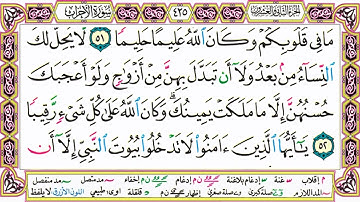 الجزء الثاني والعشرون ٤٢٥ سورة الأحزاب
مَا فِي قُلُوبِكُمْ وَكَانَ ٱللَّهُ عَلِيمًا حَلِيمًا ٥١ لَّا يَحِلُّ لَكَ
ٱلنِّسَآءُ مِنۢ بَعْدُ وَلَآ أَن تَبَدَّلَ بِهِنَّ مِنْ أَزْوَٰجٍ وَلَوْ أَعْجَبَكَ
حُسْنُهُنَّ إِلَّا مَا مَلَكَتْ يَمِينُكَ ۗ وَكَانَ ٱللَّهُ عَلَىٰ كُلِّ شَىْءٍ رَّقِيبًا
٥٢ يَٰٓأَيُّهَا ٱلَّذِينَ ءَامَنُوا۟ لَا تَدْخُلُوا۟ بُيُوتَ ٱلنَّبِىِّ إِلَّآ أَن